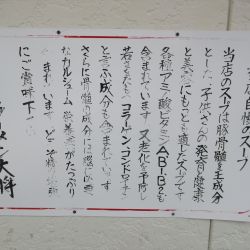 当店自慢のスープ
当店のスープは豚骨髄を主成分
とした、子供さんの発育、健康
と美容にもっとも適したスープです
各種アミノ酸ビタミンA・B1・B2も
含まれています 又老化を予防し
若さをたもつコラーゲン・コンドロイチン
と言ふ成分も含まれています
さらに骨髄の成分には
なカルシューム 栄養素がたっぷり
まれています
にご賞味下さい
ラーメン大将